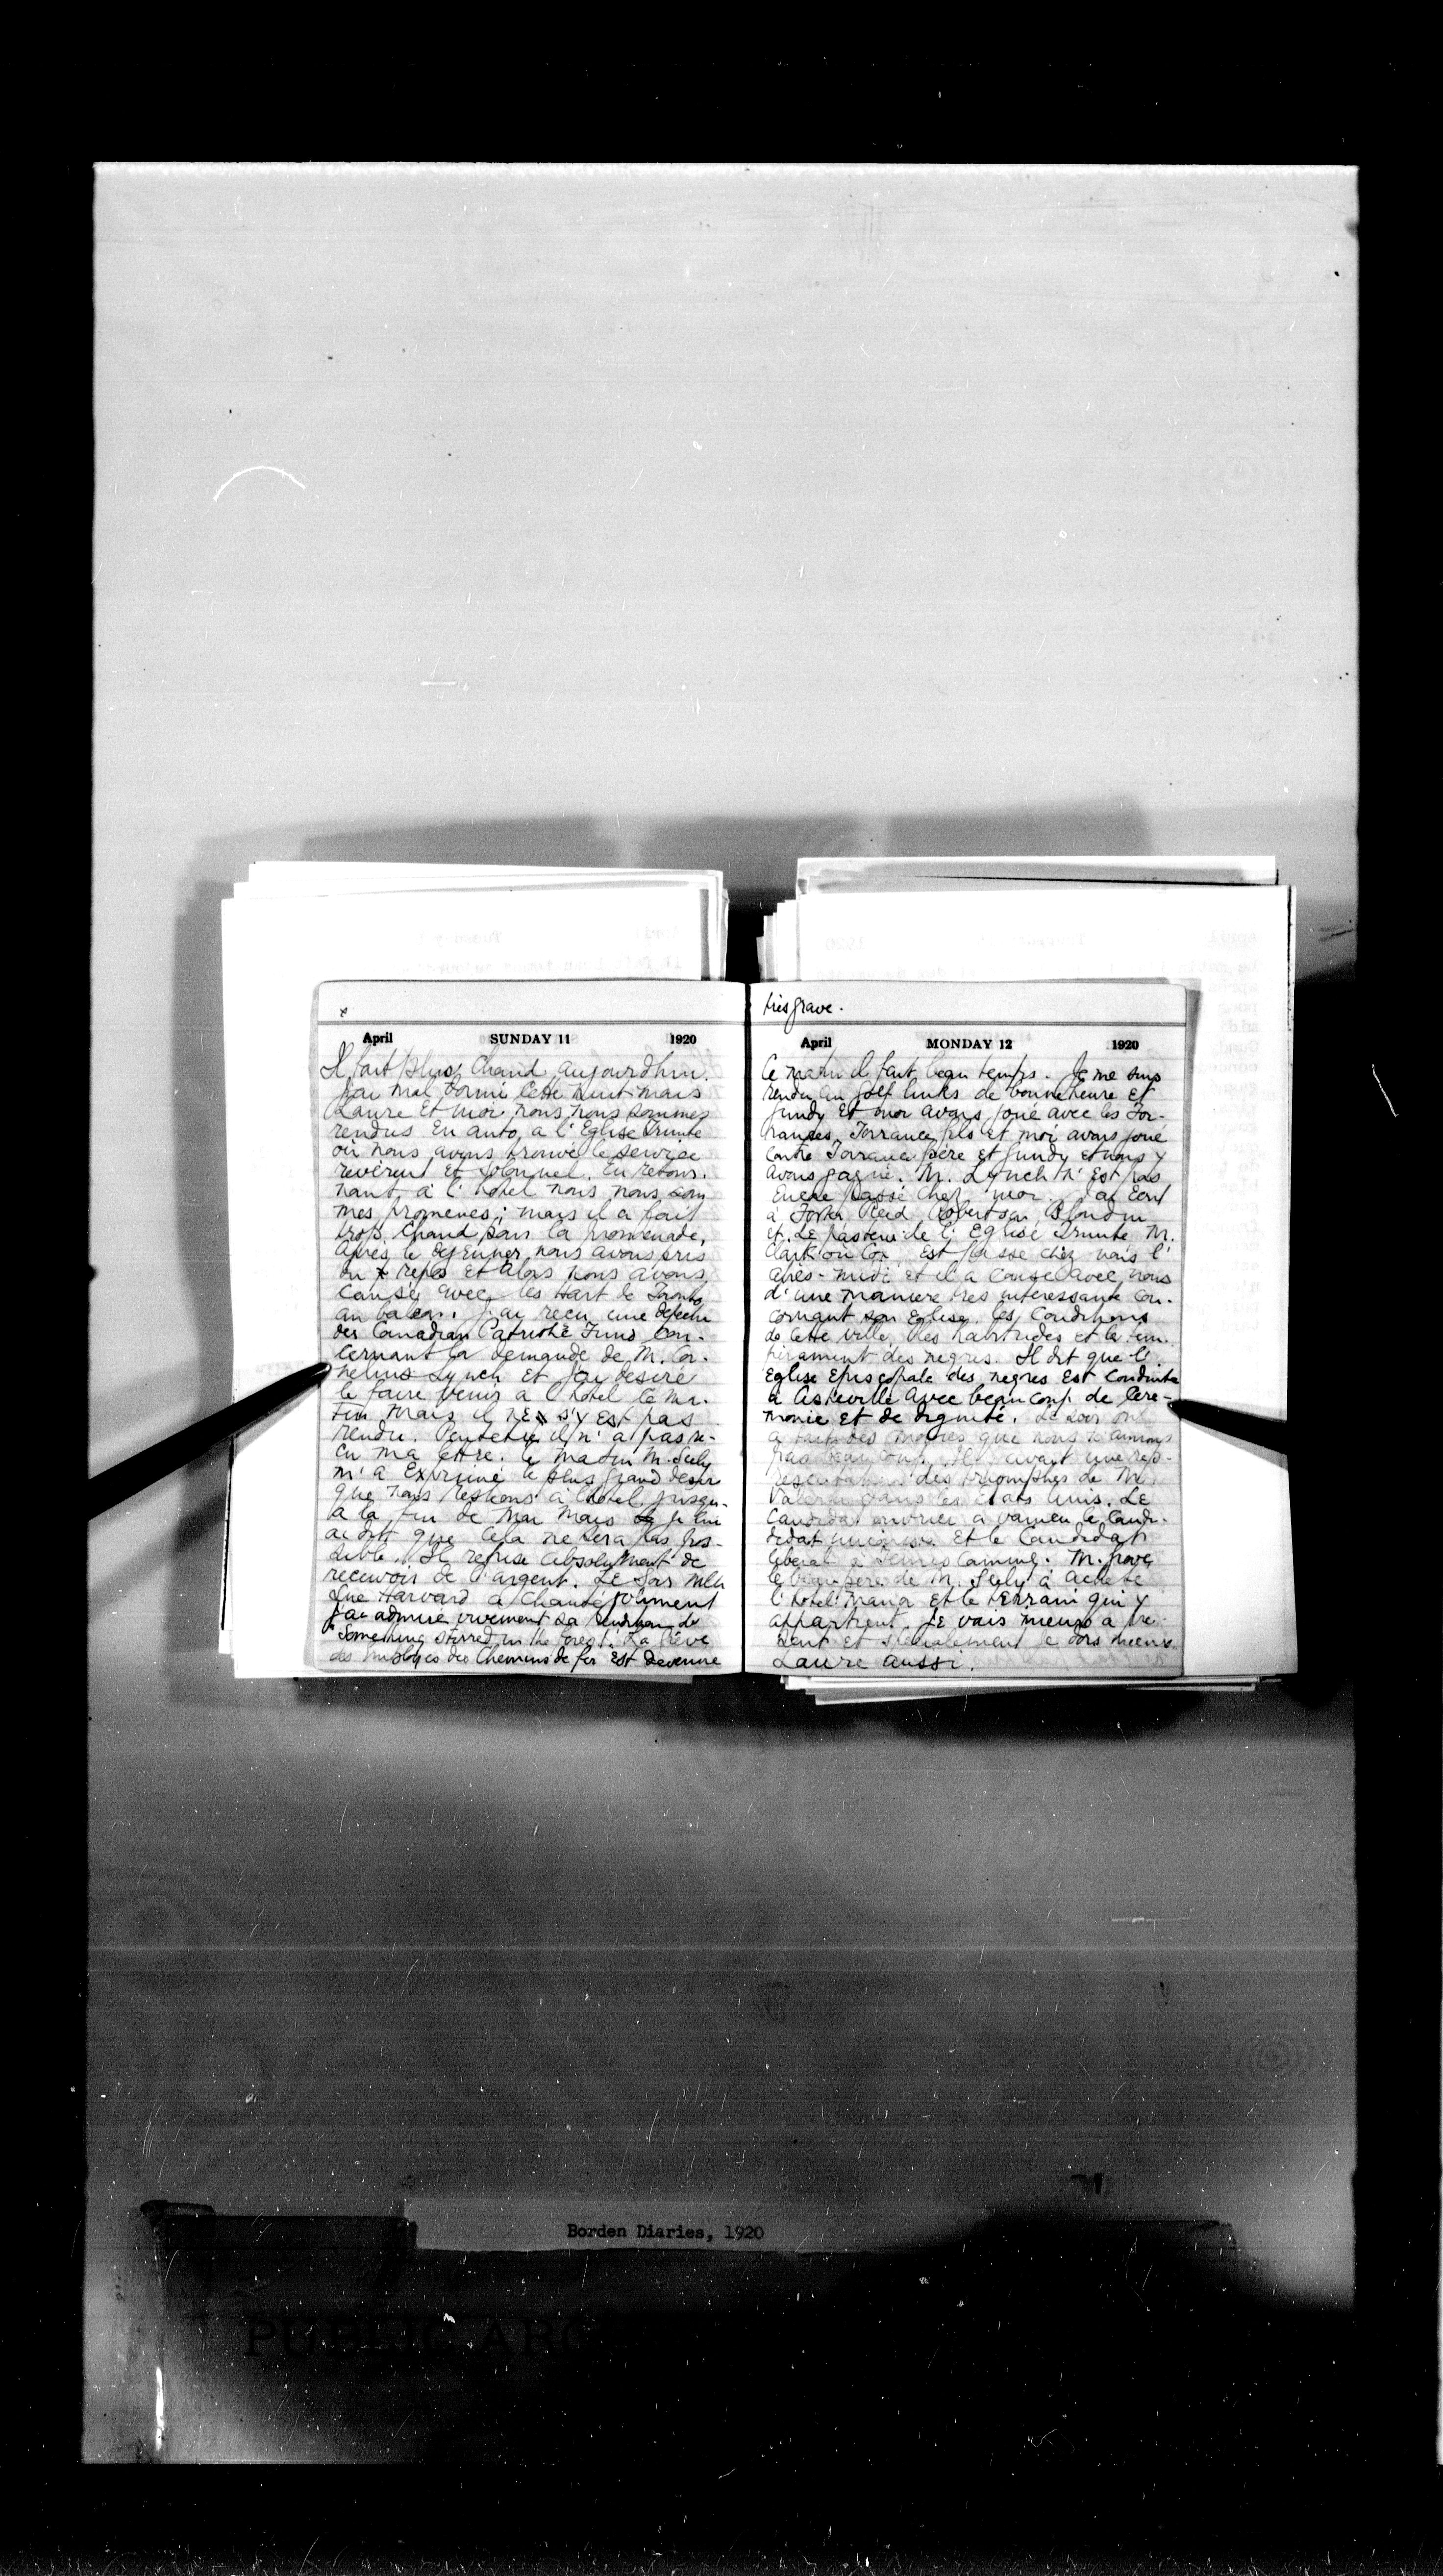 x
April SUNDAY 11 1920
Il fait plus chaud aujourdhui.
J'ai mal dormi cette nuit mais
Laure et moi nous nous sommes
rendus en auto a l'Eglise Trinite
où nous avons trouvé le service
reverent et solonnel. En retour-
nant à l'hotel nous nous som
mes promenes; mais il a fait
trop chaud pour la promenade.
Après le dejeuner nous avons pris
du repos et alors nous avons
causé avec les Hart de Toronto
au balcon. J'ai recu une depeche
des Canadian Patriotic Fund con-
cernant la demande de M. Cor-
nelius Lynch et j'ai desiré
le faire venir a l'hotel ce ma-
tin mais il ne s'y est pas
rendu. Peutetre il n'a pas re-
cu ma lettre. Ce matin M. Seely
m'a exprimé le plus grand desir
que nous restions à l'hotel jusqu-
a la fin de Mai mais je lui
ai dit que cela ne sera pas pos-
sible. Il refuse absolument de
recevoir de l'argent. Le Soir Mlle
Sue Harvard a chanté joliment
J'ai admire vivement sa rendition de
"Something stirred in the forest". La Grève
des employes des Chemins de fer est devenue
tres grave.
April MONDAY 12 1920
Ce matin il fait beau temps. Je me suis
rendu au golf links de bonne heure et
Gundy et moi avons joué avec les Tor-
rances. Torrance fils et moi avons joué
contre Torrance père et Gundy et nous y
avons gagné. M. Lynch n'est pas
encore passé chez moi. J'ai ecrit
à Foster Reid Robertson Blondin
et. Le pasteur de l'Eglise Trinite M.
Clark ou Cox est passe chez nous l'
après-midi et il a causé avec nous
d'une maniere tres interessante con-
cernant son Eglise, les conditions
de cette ville, les habitudes et le tem-
perament des negres. Il dit que l'
Eglise Episcopale des negres est conduite
a Asheville avec beaucoup de cere-
monie et de dignité. Le soir on
a fait des que nous n'aimons
pas beaucoup. Il y avait une rep-
resentation des triomphes de M.
Valera dans les Etats Unis. Le
Candidat ouvrier a vaincu le candi-
didat unioniste et le Candidat
liberal a Camung. M. Grove
le beau-pere de M. Seely a acheté
l'hotel Manor et le terrain qui y
appartient. Je vais mieux a pre-
sent et specialement je dors mieux.
Laure aussi.
Borden Diaries, 1920
PUBLIC ARC